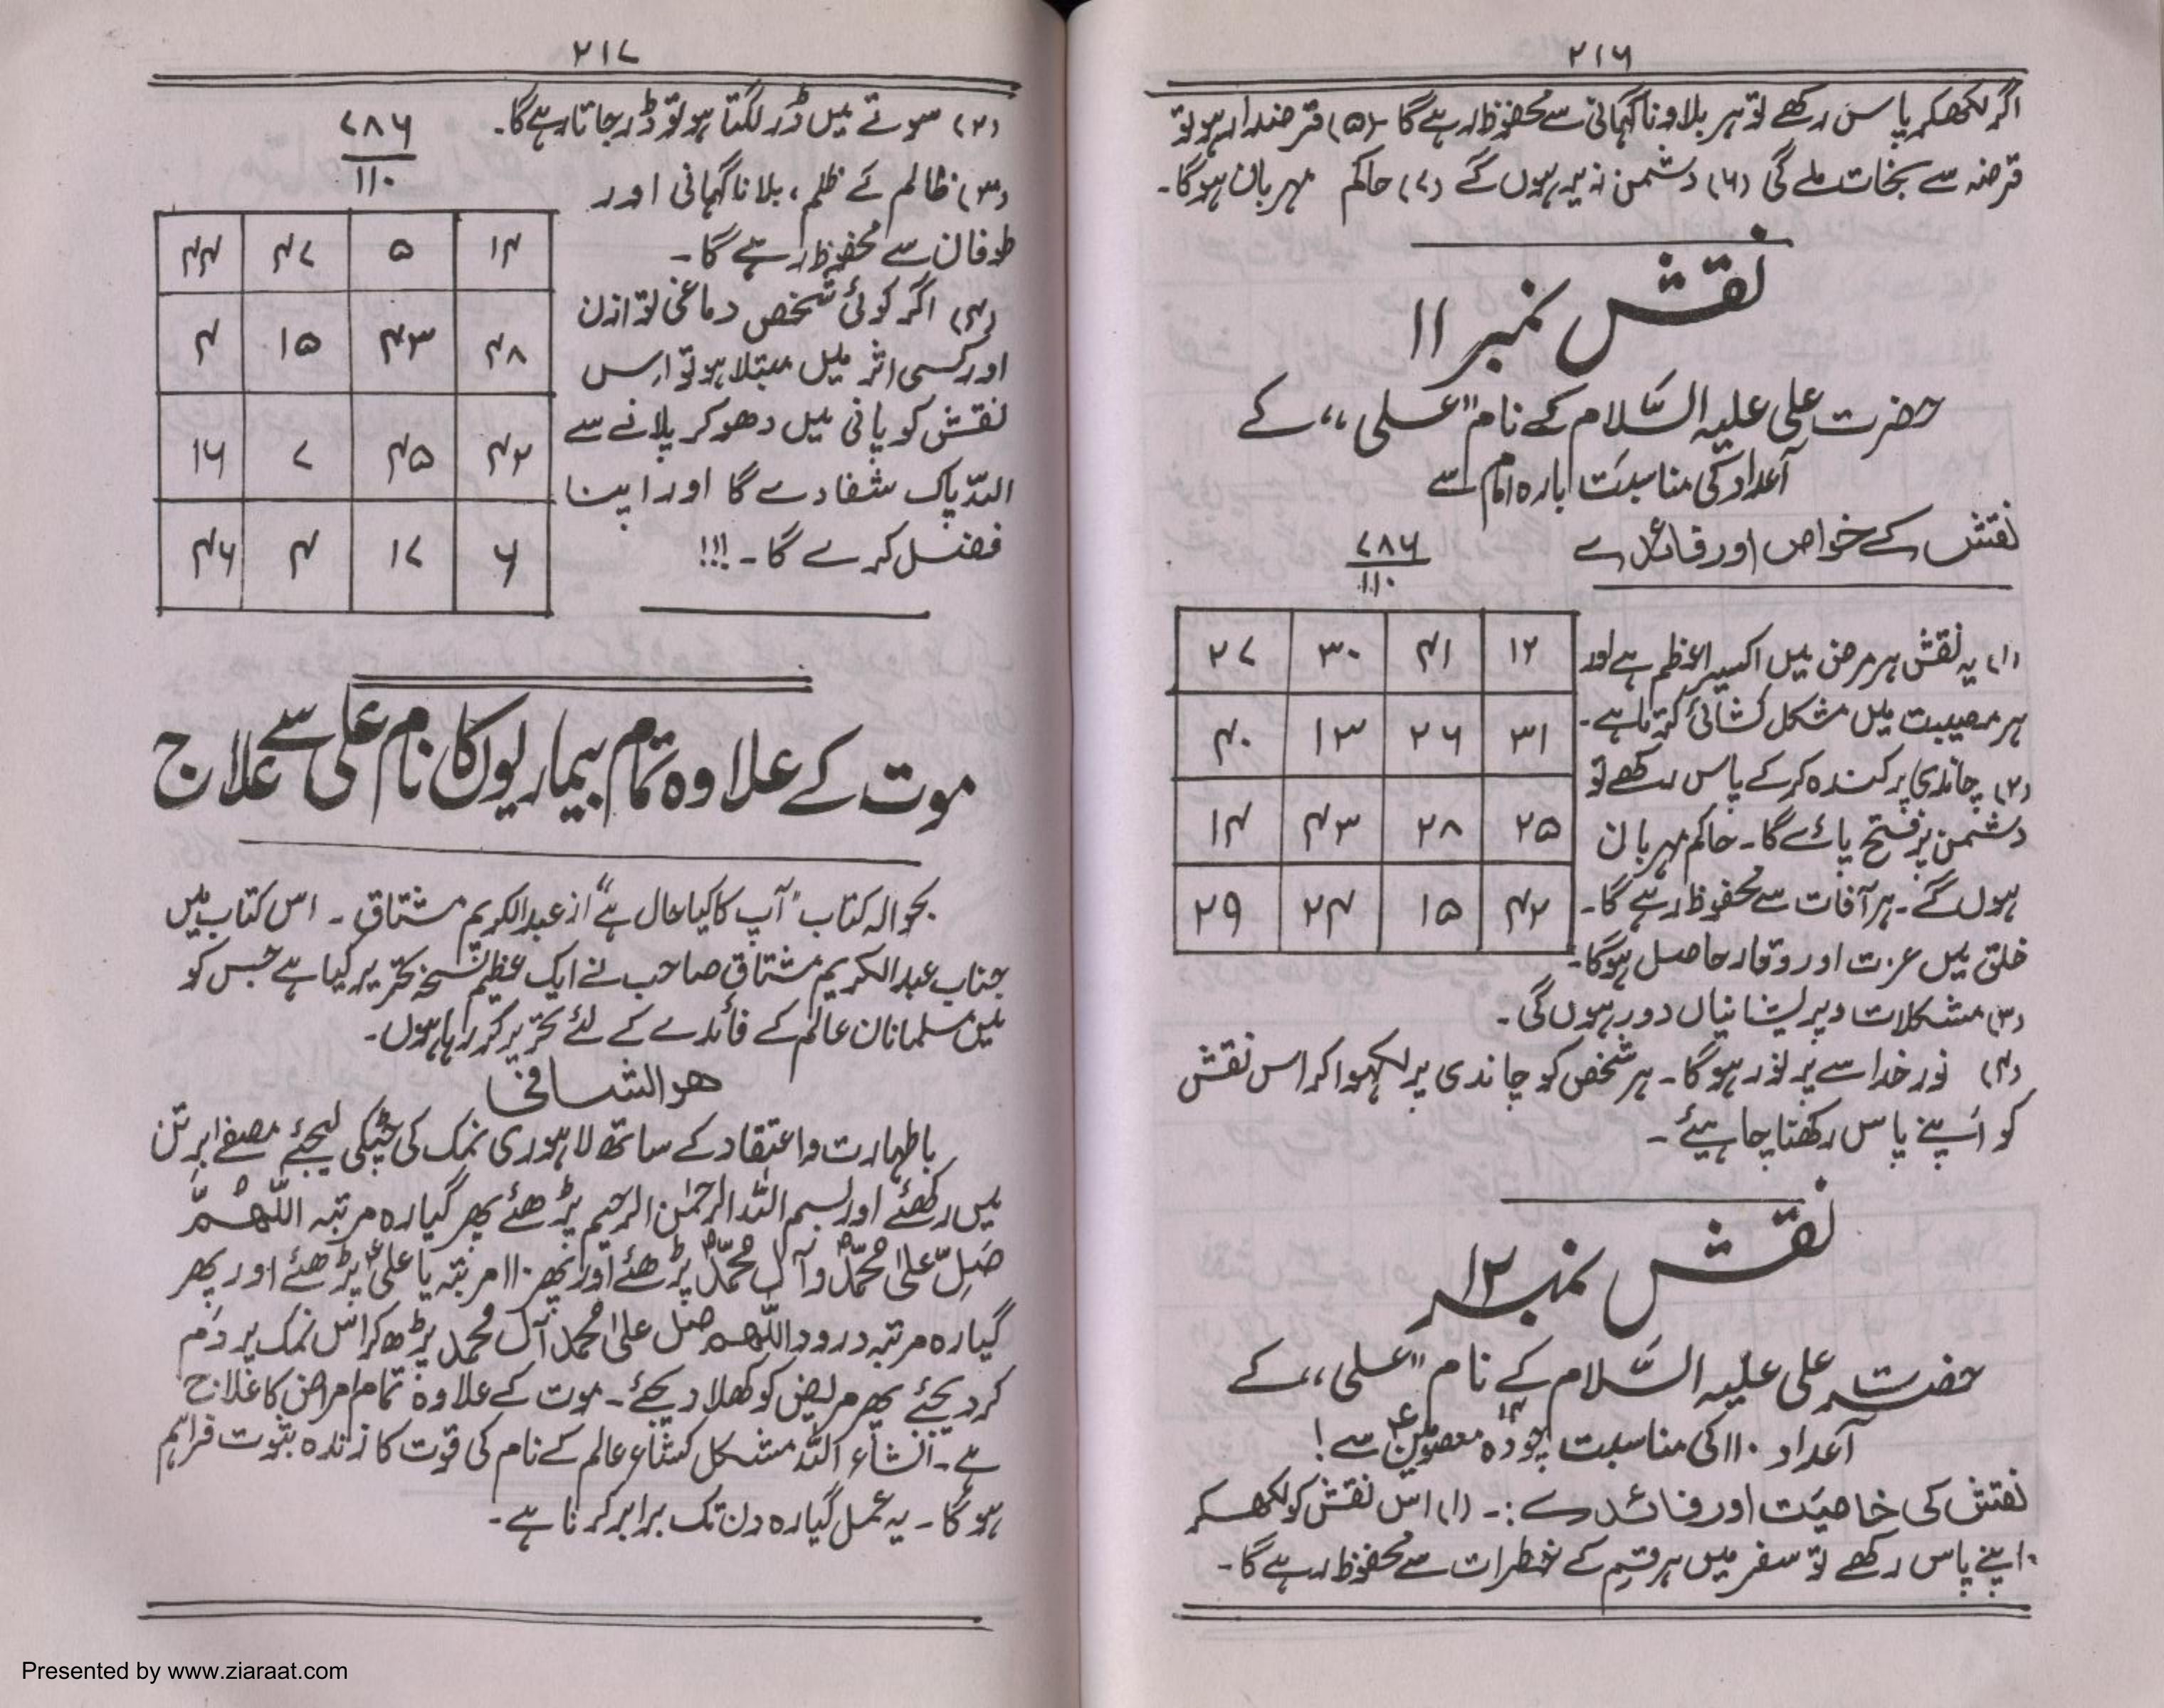 ۲۱۶
اگر لکھکر پاس رکھے تو ہر بلا و ناگہانی سے محفوظ رہے گا ۔(۵) قرضدار ہو تو
قرضہ سے نجات ملے گی (۶) دشمن زیر ہوں گے (۷) حاکم مہربان ہو گا۔
نقش نمبر ۱۱
حضرت علی علیہ السّلام کے نام "علی" کے
اعداد کی مناسبت بارہ امام سے
نقش کے خواص اور فائدے
۷۸۶
۱۱۰
۲۷ ۳۰ ۴۱ ۱۲
۴۰ ۱۳ ۲۶ ۳۱
۱۴ ۴۳ ۲۸ ۲۵
۲۹ ۲۴ ۱۵ ۴۲
(۱) یہ نقش ہر مرض میں اکسیر اعظم ہے اور
ہر مصیبت میں مشکل کشائی کرتا ہے۔
(۲) چاندی پر کندہ کر کے پاس رکھے تو
دشمن پر فتح پائے گا۔ حاکم مہربان
ہوں گے۔ ہر آفات سے محفوظ رہے گا۔
خلق میں عزت اور وقار حاصل ہو گا۔
(۳) مشکلات و پریشانیاں دور ہوں گی۔
(۴) نور خدا سے پر نور ہو گا۔ ہر شخص کو چاندی پر لکھوا کر اس نقش
کو اپنے پاس رکھنا چاہیئے ۔
نقش نمبر ۱۲
حضرت علی علیہ السّلام کے نام "علی" کے
اعداد ۱۱۰ کی مناسبت چودہ ۱۴ معصومینؑ سے !
نقش کی خاصیت اور فائدے :۔ (۱) اس نقش کو لکھ کر
اپنے پاس رکھے تو سفر میں ہر قسم کے خطرات سے محفوظ رہے گا۔
۲۱۷
(۲) سوتے میں ڈر لگتا ہو تو ڈر جاتا رہے گا۔
۷۸۶
۱۱۰
۴۴ ۴۷ ۵ ۱۴
۴ ۱۵ ۴۳ ۴۸
۱۶ ۷ ۴۵ ۴۲
۴۶ ۴ ۱۷ ۶
(۳) ظالم کے ظلم ، بلا ناگہانی اور
طوفان سے محفوظ رہے گا ۔
(۴) اگر کوئی شخص دماغی توازن
اور کسی اثر میں مبتلا ہو تو اس
نقش کو پانی میں دھو کر پلانے سے
اللہ پاک شفا دے گا اور اپنا
فضل کرے گا ۔ !!!
موت کے علاوہ تمام بیماریوں کا نام علی سے علاج
بحوالہ کتاب "آپ کا کیا حال ہے" از عبدالکریم مشتاق ۔ اس کتاب میں
جناب عبدالکریم مشتاق صاحب نے ایک عظیم نسخہ تحریر کیا ہے جس کو
میں مسلمانان عالم کے فائدے کے لئے تحریر کر رہا ہوں۔
ھو الشافی
باطہارت و اعتقاد کے ساتھ لاہوری نمک کی چٹکی لیجئے مصفا برتن
میں رکھئے اور بسم اللہ الرحمٰن الرحیم پڑھئے پھر گیارہ مرتبہ اللّٰھمّ
صَلِّ علیٰ محمدؐ و آل محمدؐ پڑھئے اور پھر ۱۱۰ مرتبہ یا علیؑ پڑھئے اور پھر
گیارہ مرتبہ درود اللّٰھم صل علیٰ محمد آل محمد پڑھ کر اس نمک پر دَم
کر دیجئے پھر مریض کو کھلا دیجئے ۔ موت کے علاوہ تمام امراض کا علاج
ہے ۔ انشاء اللہ مشکل کشاء عالم کے نام کی قوت کا زندہ ثبوت فراہم
ہو گا ۔ یہ عمل گیارہ دن تک برابر کرنا ہے ۔
Presented by www.ziaraat.com